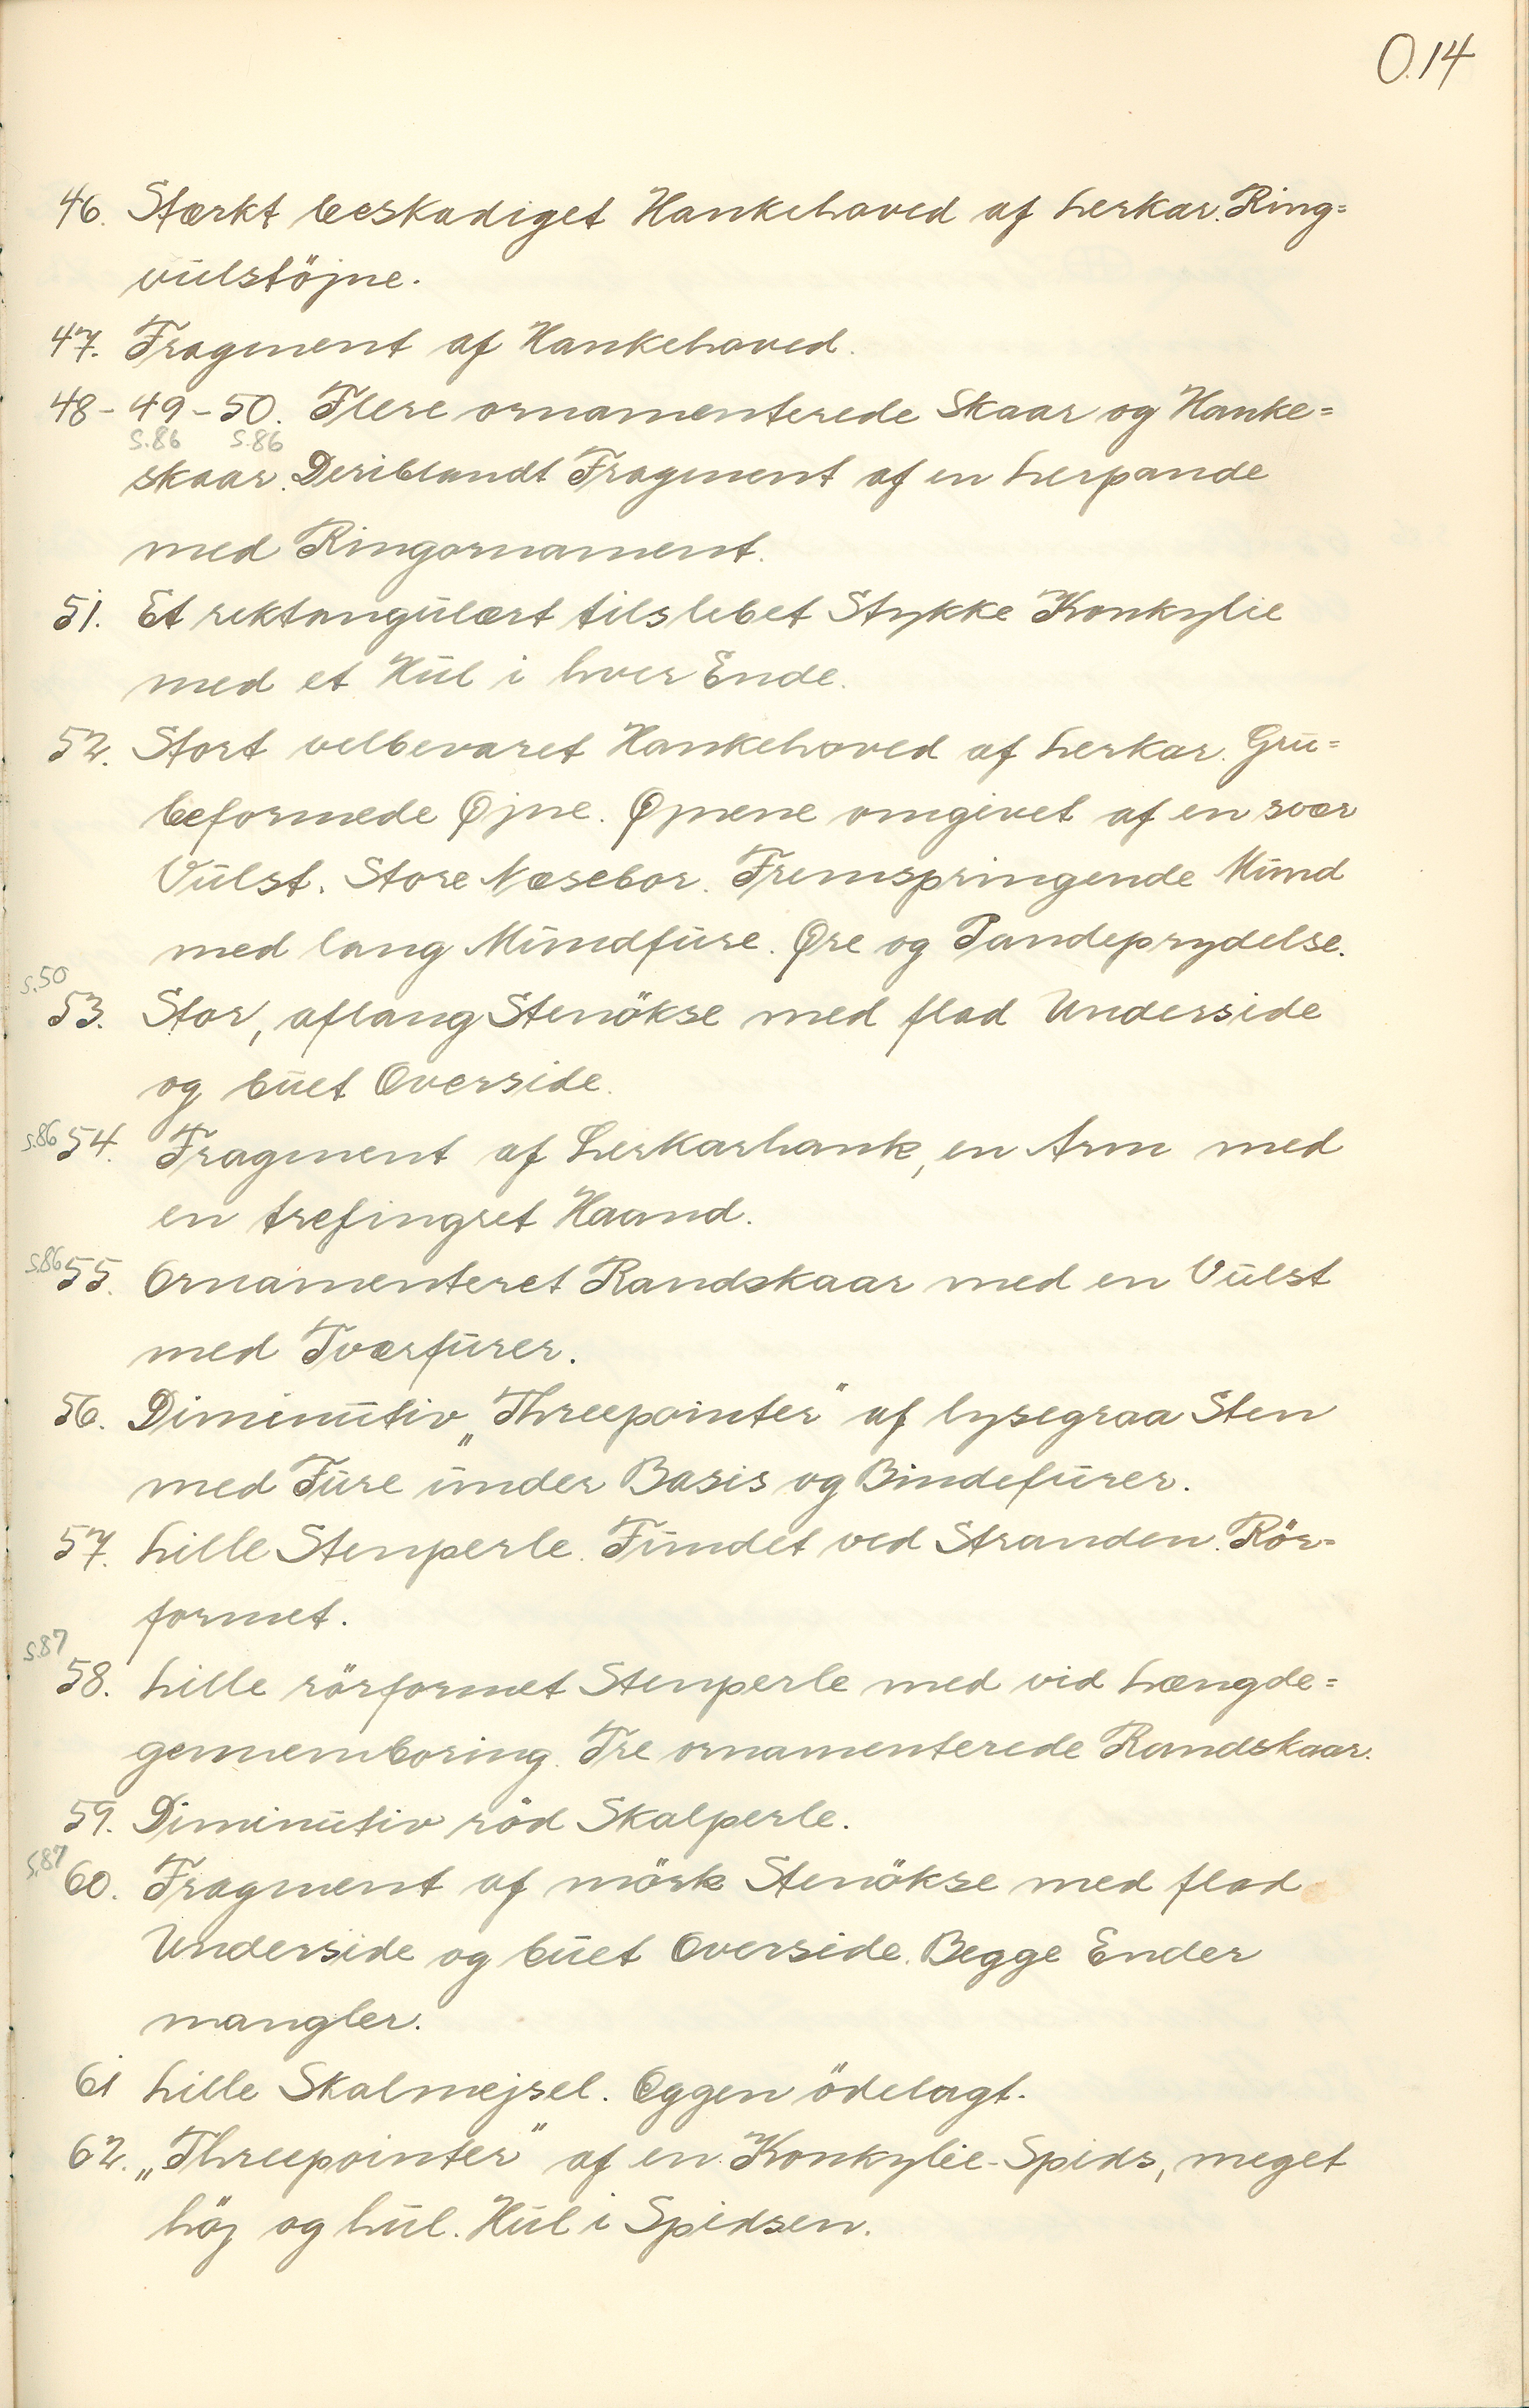 O.14
46. Stærkt beskadiget Hankehoved af Lerkar. Ring=
vulstöjne.
47. Fragment af Hankehoved.
48-49-50. Flere ornamenterede Skaar og Hanke=
S.86 S.86
skaar. Deriblandt Fragment af en Lerpande
med Ringornament.
51. Et rektangulært tilslebet Stykke Konkylie
med et Hul i hver Ende.
52. Stort velbevaret Hankehoved af Lerkar. Gru=
beformede Øjne. Øjnene omgivet af en svær
Vulst. Store Næsebor. Fremspringende Mund
med lang Mundfure. Øre og Pandeprydelse.
S.50
53. Stor, aflang Stenökse med flad Underside
og buet Overside.
S.86 54. Fragment af Lerkarhank, en Arm med
en trefingret Haand.
S.86 55. Ornamenteret Randskaar med en Vulst
med Tværfurer.
56. Diminutiv „Threepointer" af lysegraa Sten
med Fure under Basis og Bindefurer.
57. Lille Stenperle. Fundet ved Stranden. Rör=
formet.
S.87
58. Lille rörformet Stenperle med vid Længde=
gennemboring. Tre ornamenterede Randskaar.
59. Diminutiv röd Skalperle.
S.87
60. Fragment af mörk Stenökse med flad
Underside og buet Overside. Begge Ender
mangler.
61 Lille Skalmejsel. Eggen ödelagt.
62. „Threepointer" af en Konkylie-Spids, meget
höj og hul. Hul i Spidsen.